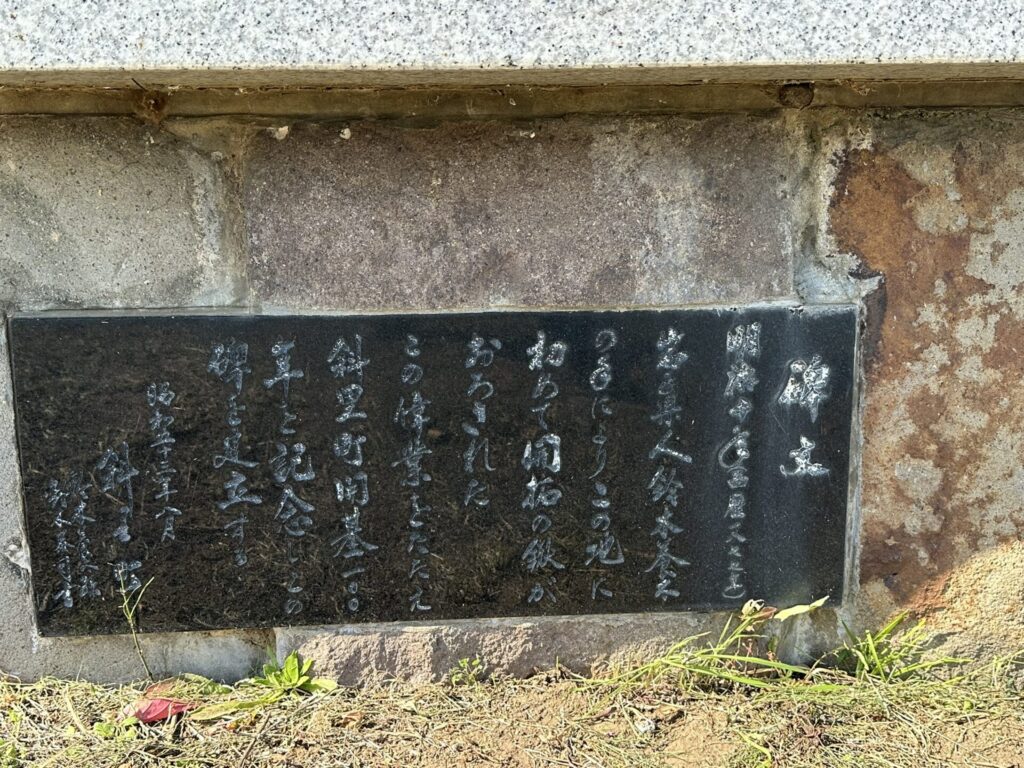 碑文
明治十年(西暦一八七七年)
岩手県人鈴木養太
の手によりこの地に
初めて開拓の鍬が
おろされた
この偉業をたたえ
斜里町開基一〇〇
年を記念しこの
碑を建立する
昭和五十三年八月
斜里町
鈴木養太